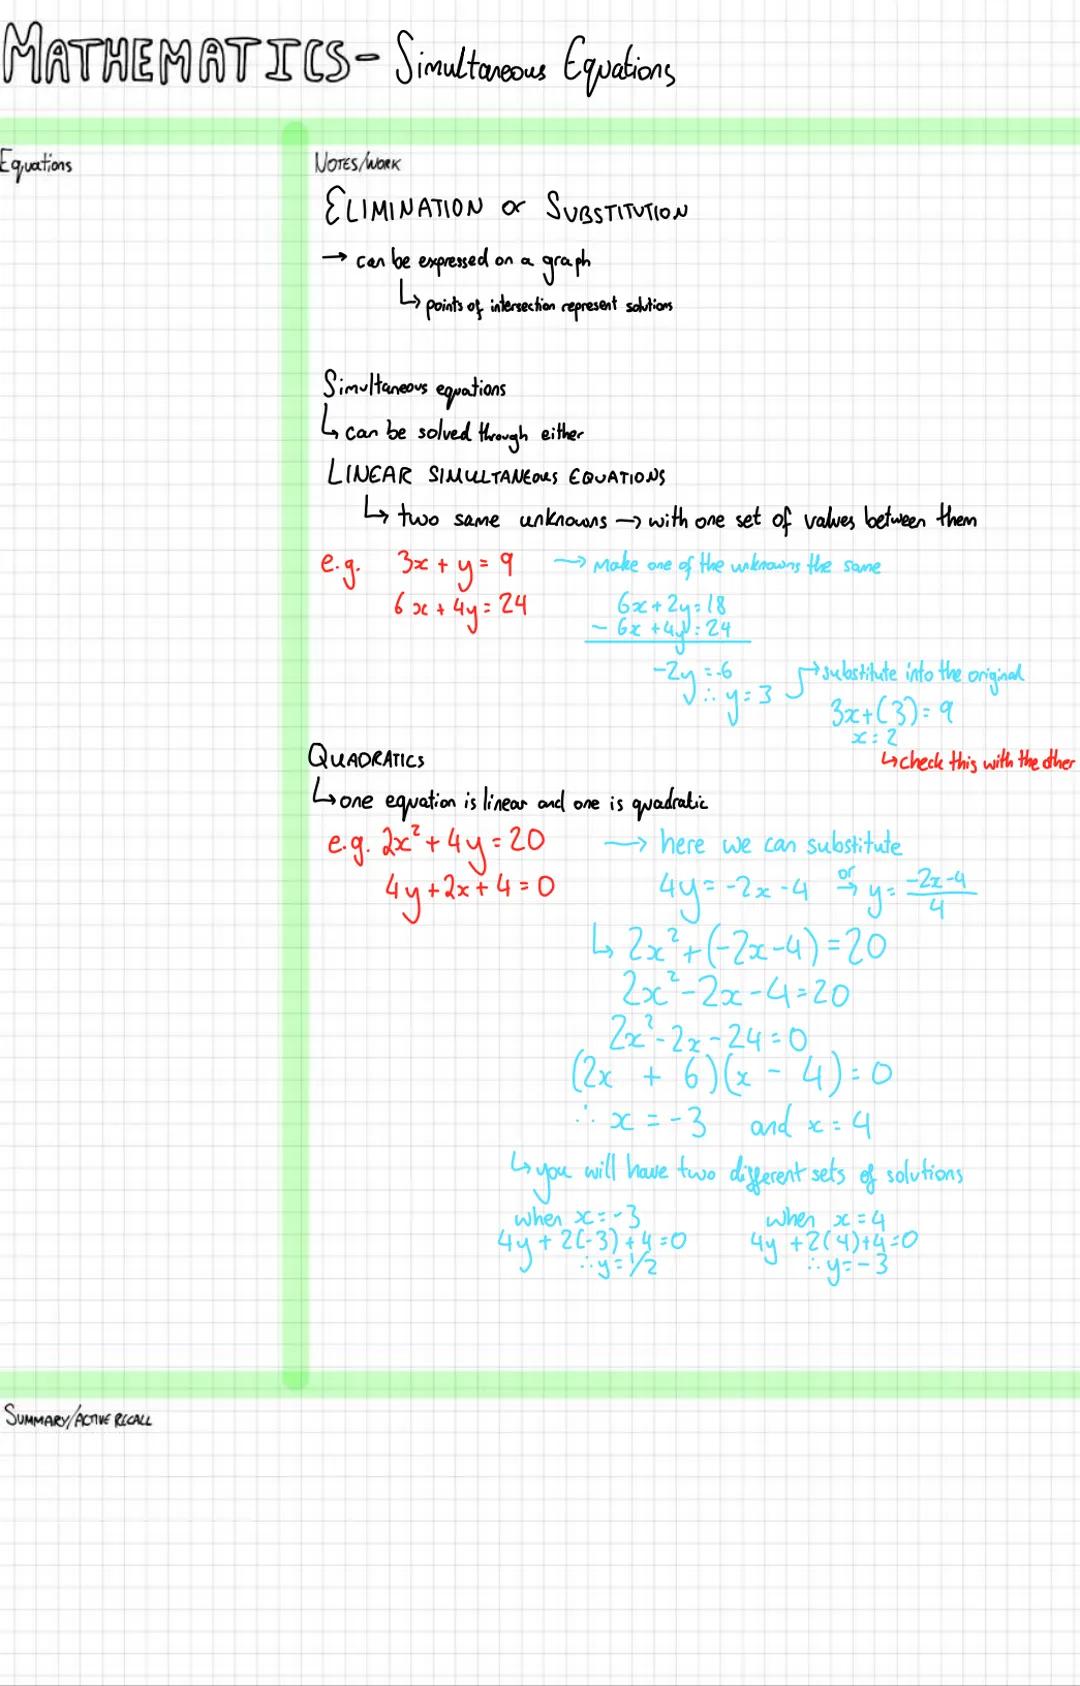 MATHEMATICS - Simultaneous Equations
Equations
NOTES/WORK
ELIMINATION or SUBSTITUTION
→ can be expressed on a graph
↳ points of intersection represent solutions
Simultaneous equations
↳ can be solved through either
LINEAR SIMULTANEOUS EQUATIONS
↳ two same unknowns → with one set of values between them
e.g. 3x + y = 9 → Make one of the unknowns the same
6x + 4y = 24
6x + 2y = 18
- 6x + 4y = 24
-2y = -6
∴ y = 3
→ substitute into the original
3x + (3) = 9
x = 2
↳ check this with the other
QUADRATICS
↳ one equation is linear and one is quadratic
e.g. 2x² + 4y = 20 → here we can substitute
4y + 2x + 4 = 0
4y = -2x - 4 or → y = (-2x - 4)/4
↳ 2x² + (-2x - 4) = 20
2x² - 2x - 4 = 20
2x² - 2x - 24 = 0
(2x + 6)(x - 4) = 0
∴ x = -3 and x = 4
↳ you will have two different sets of solutions
when x = -3
4y + 2(-3) + 4 = 0
∴ y = 1/2
when x = 4
4y + 2(4) + 4 = 0
∴ y = -3
SUMMARY/ACTIVE RECALL